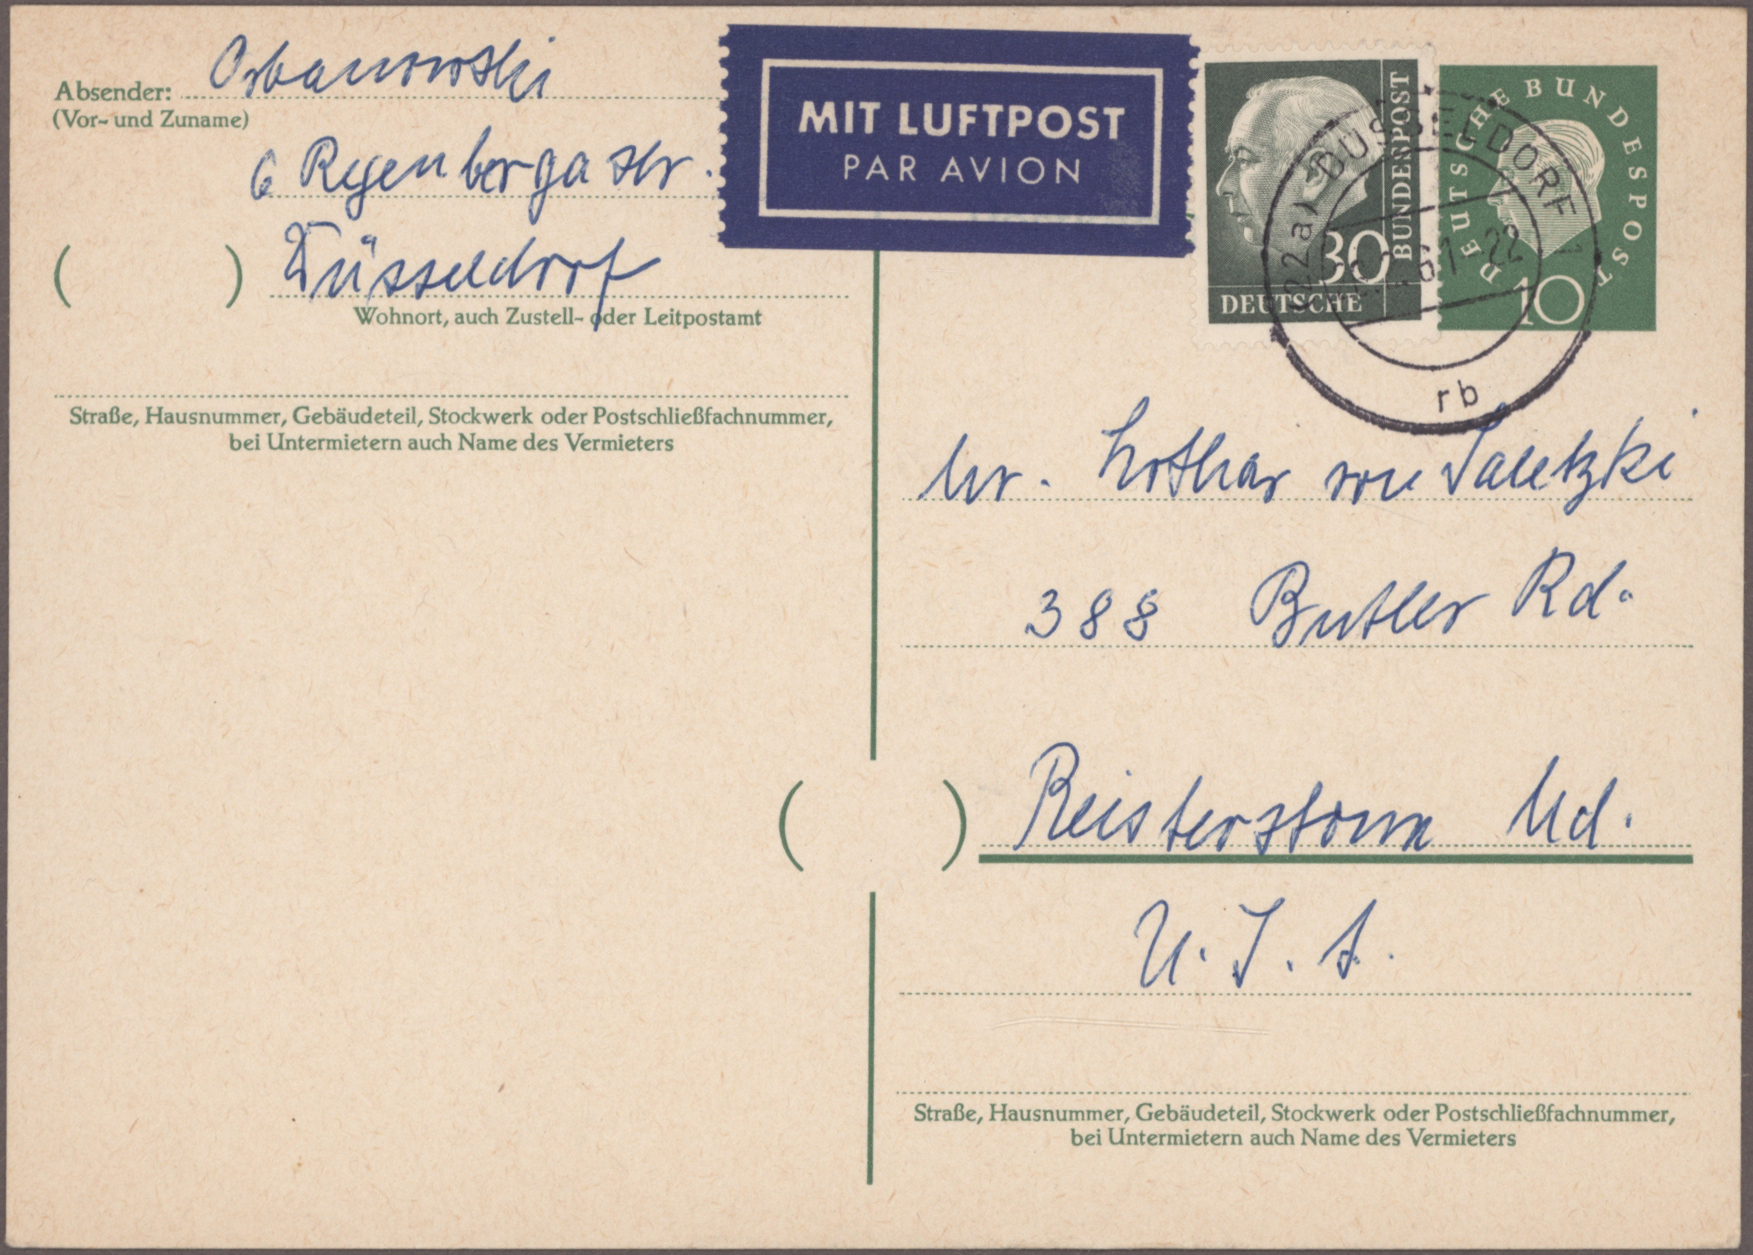 Absender: Orbanowski
(Vor- und Zuname)
6 Regenbergastr.
( ) Düsseldorf
Wohnort, auch Zustell- oder Leitpostamt
Straße, Hausnummer, Gebäudeteil, Stockwerk oder Postschließfachnummer,
bei Untermietern auch Name des Vermieters
MIT LUFTPOST
PAR AVION
30
DEUTSCHE
BUNDESPOST
DEUTSCHE BUNDESPOST
10
(22a) DÜSSELDORF
61-22
rb
Mr. Lothar von Saletzki
388 Butler Rd.
( ) Reisterstown Md.
U.S.A.
Straße, Hausnummer, Gebäudeteil, Stockwerk oder Postschließfachnummer,
bei Untermietern auch Name des Vermieters